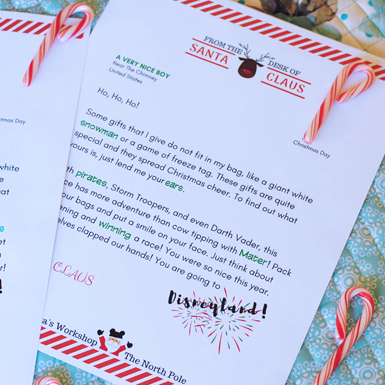 FROM THE DESK OF
SANTA CLAUS
A VERY NICE BOY
Near The Chimney
United States
Christmas Day
Christmas Day
Ho, Ho, Ho!
Some gifts that I give do not fit in my bag, like a giant white
snowman or a game of freeze tag. These gifts are quite
special and they spread Christmas cheer. To find out what
yours is, just lend me your ears.
pirates, Storm Troopers, and even Darth Vader, this
has more adventure than cow tipping with Mater! Pack
your bags and put a smile on your face. Just think about
and winning a race! You were so nice this year,
elves clapped our hands! You are going to
Disneyland!
CLAUS
Workshop The North Pole
white
what